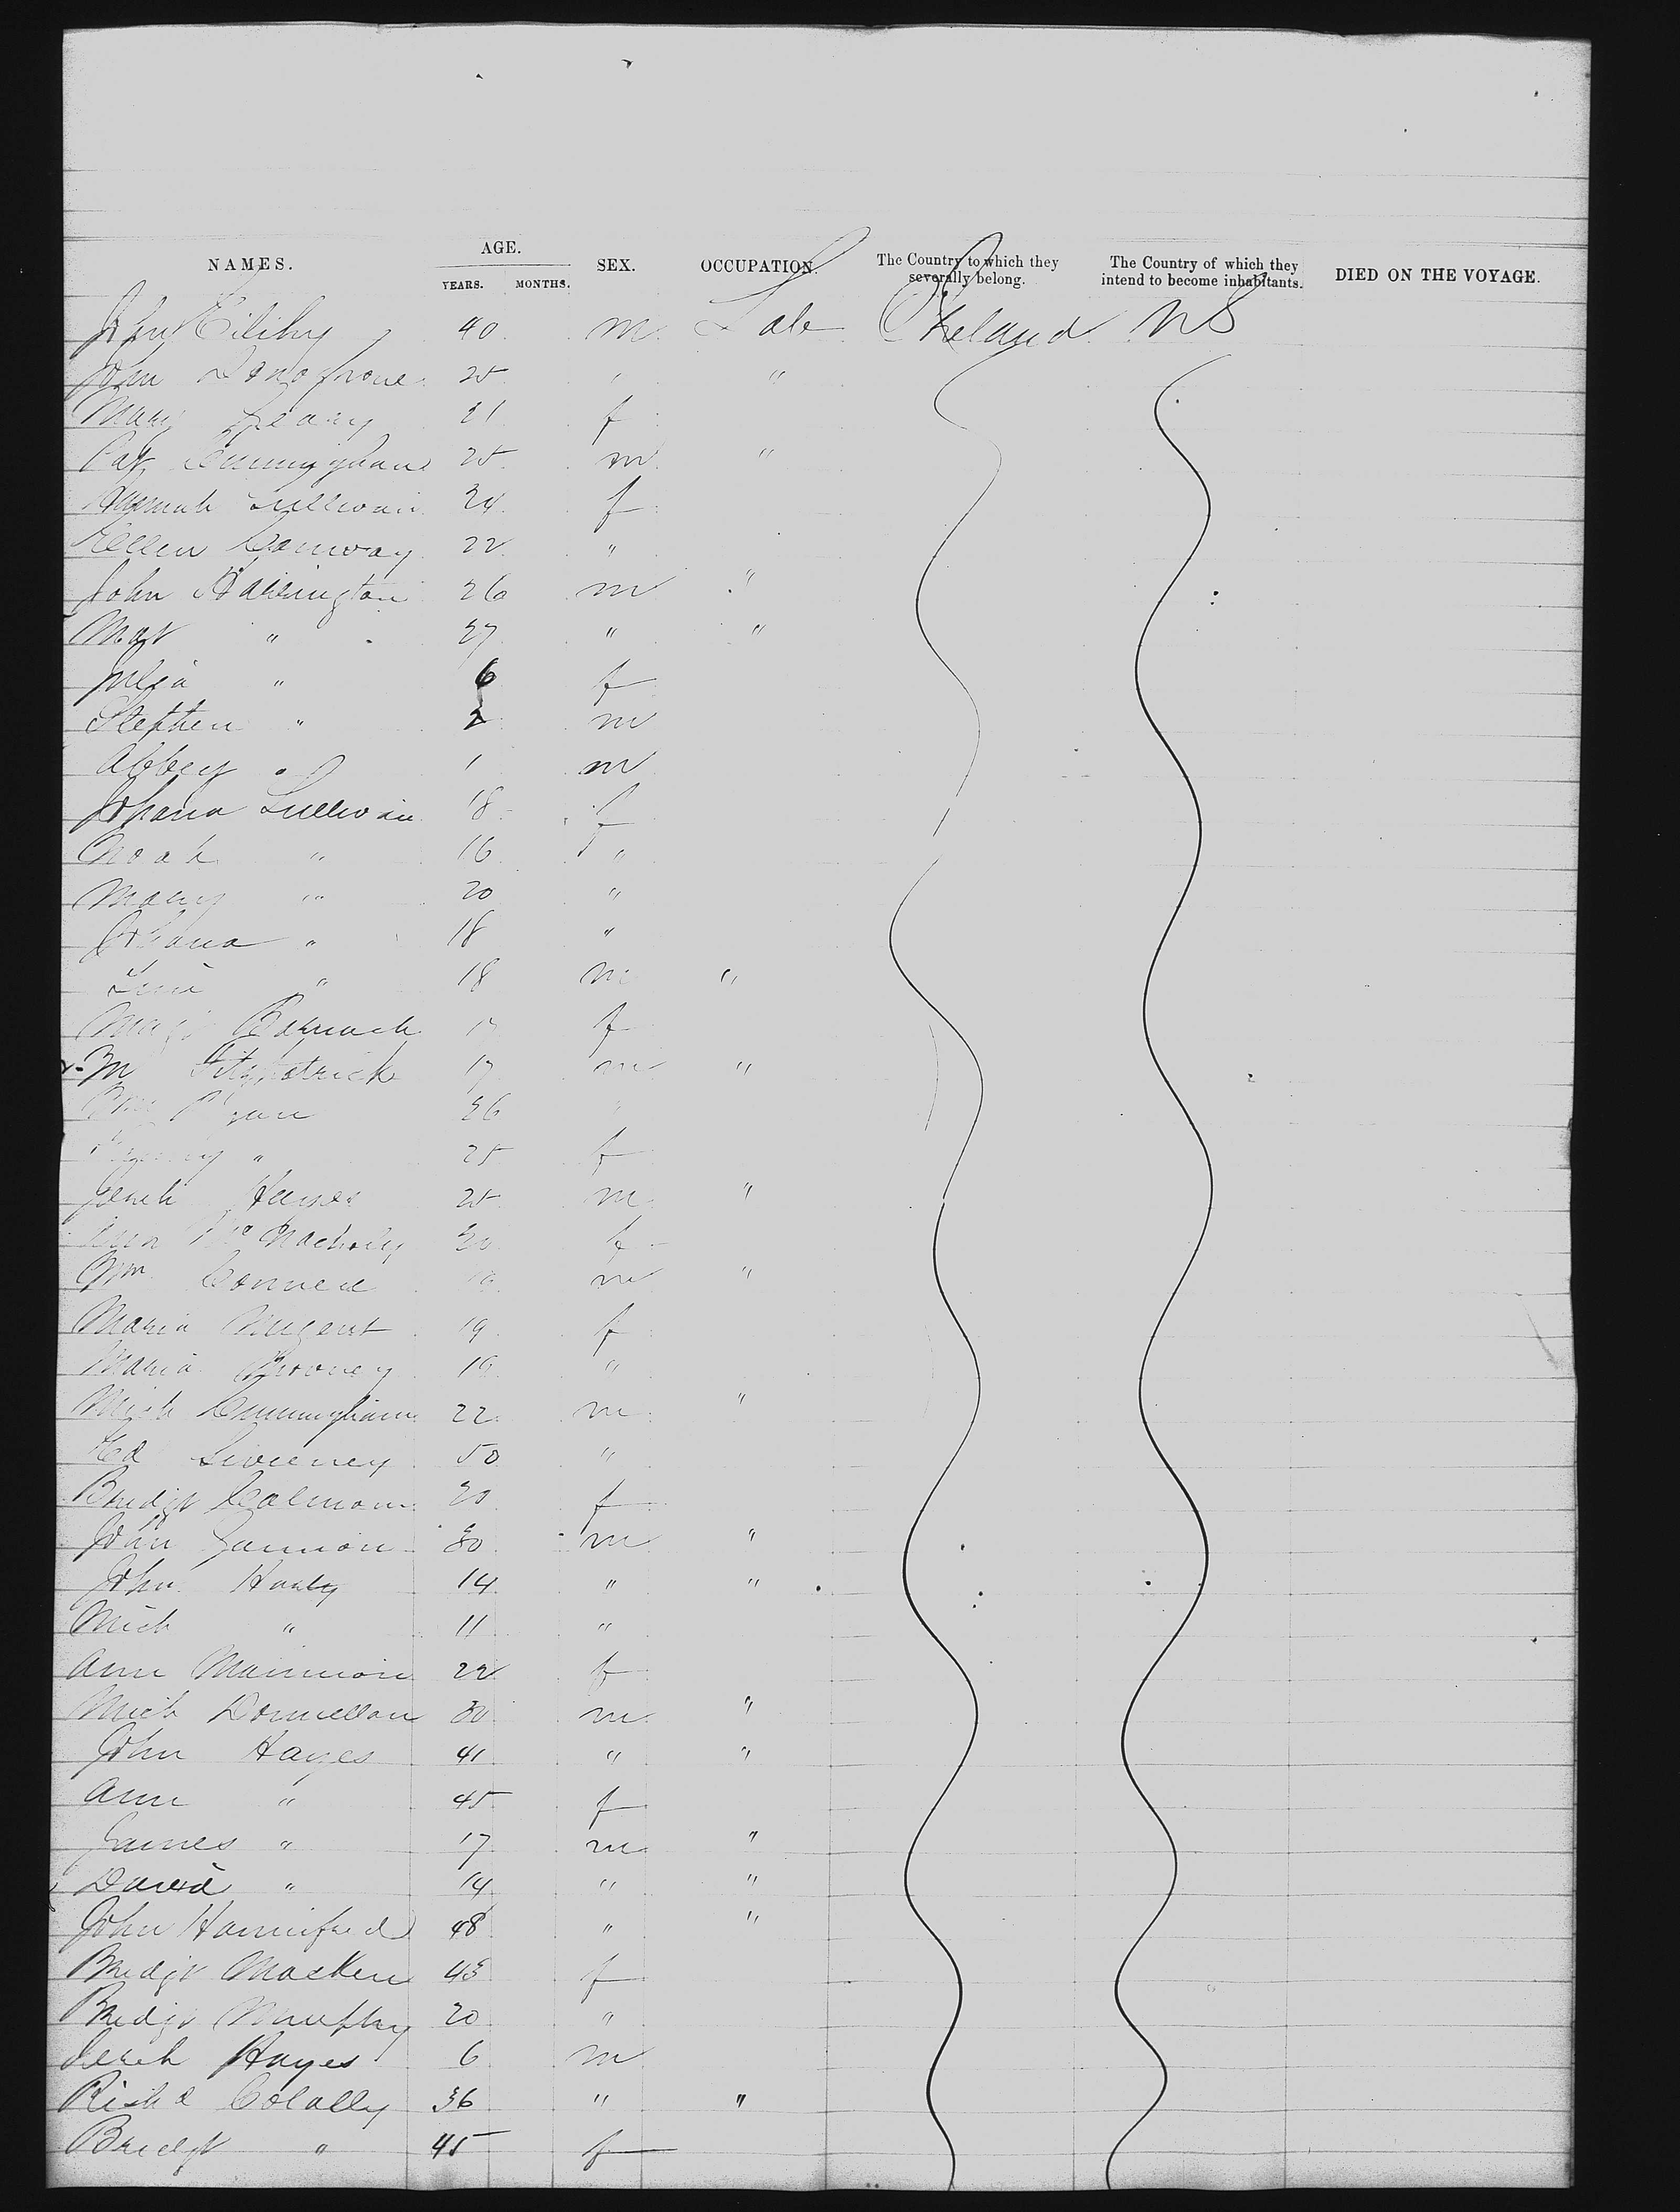 NAMES. AGE. SEX. OCCUPATION. The Country to which they severally belong. The Country of which they intend to become inhabitants. DIED ON THE VOYAGE.
YEARS. MONTHS.
John 40 m Lab Ireland US
John 25 " "
Mary Leary 21 f
Pat Cunningham 25 m "
Hannah Sullivan 24 f
Ellen Conway 22 "
John Harrington 26 m "
Mat " 27 " "
Julia " 6 f
Stephen " 2 m
Abbey " 1 m
Johana Sullivan 18 f
Noah " 16 "
Mary " 20 "
Johana " 18 "
" 18 m "
f
Fitzpatrick 17 m "
Ryan 26 "
" 25 f
Jereh Hayes 25 m "
Ann 30 f
Wm Connell m "
Maria Nugent 19 f
Maria 19 "
Mich Cunningham 22 m "
Ed Sweeney 50 "
Bridgt Calman 20 f
John Gannon 30 m "
John Hanly 14 " "
Mich " 11 "
Ann Mannion 22 f
Mich Donnellan 30 m "
John Hayes 41 " "
Ann " 45 f
James " 17 m "
David " 14 " "
John 48 " "
Bridgt Macken 43 f
Bridgt Murphy 20 "
Jereh Hayes 6 m
Richd Colally 36 " "
Bridgt " 45 f